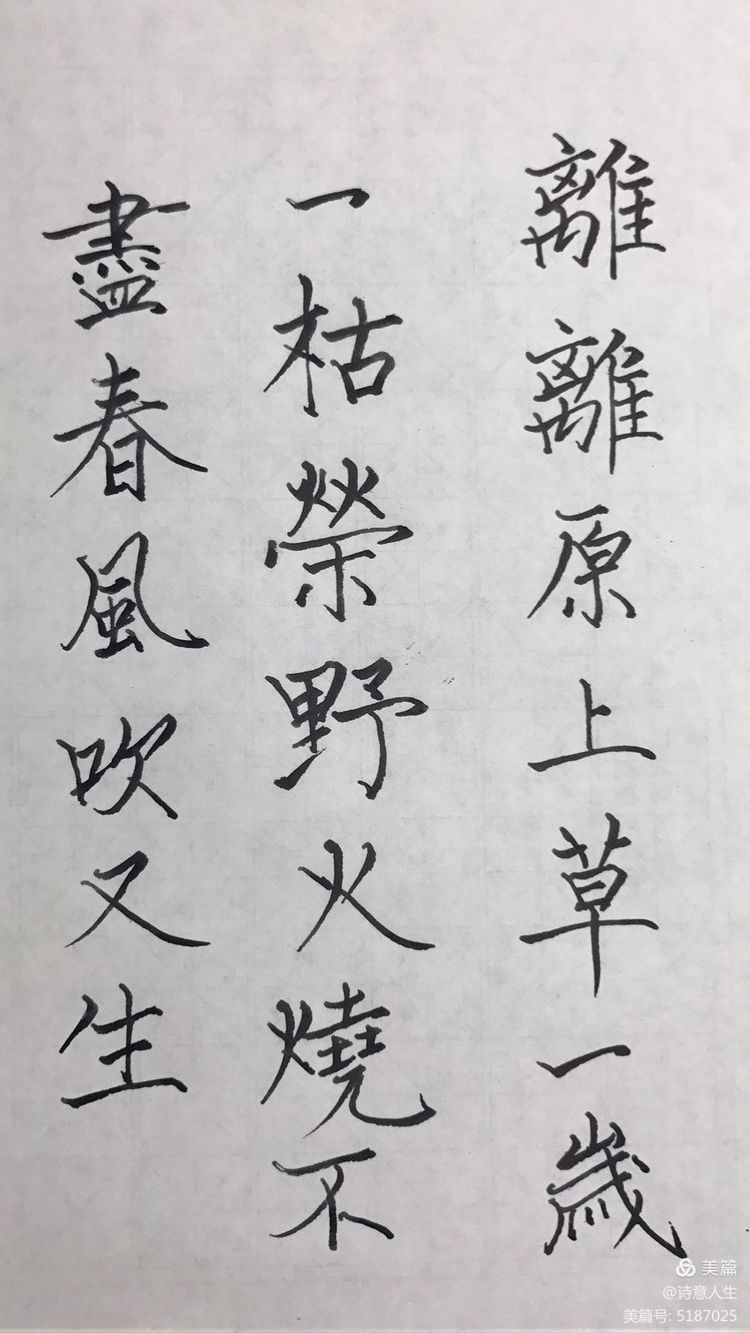 離離原上草一歲
一枯榮野火燒不
盡春風吹又生
美篇
@诗意人生
美篇号: 5187025